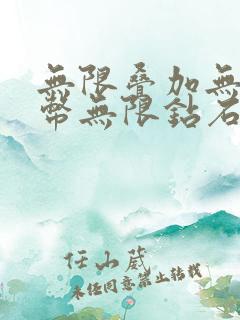 無限疊加無
幣無限鉆石
任山葳
未經同意禁止轉載